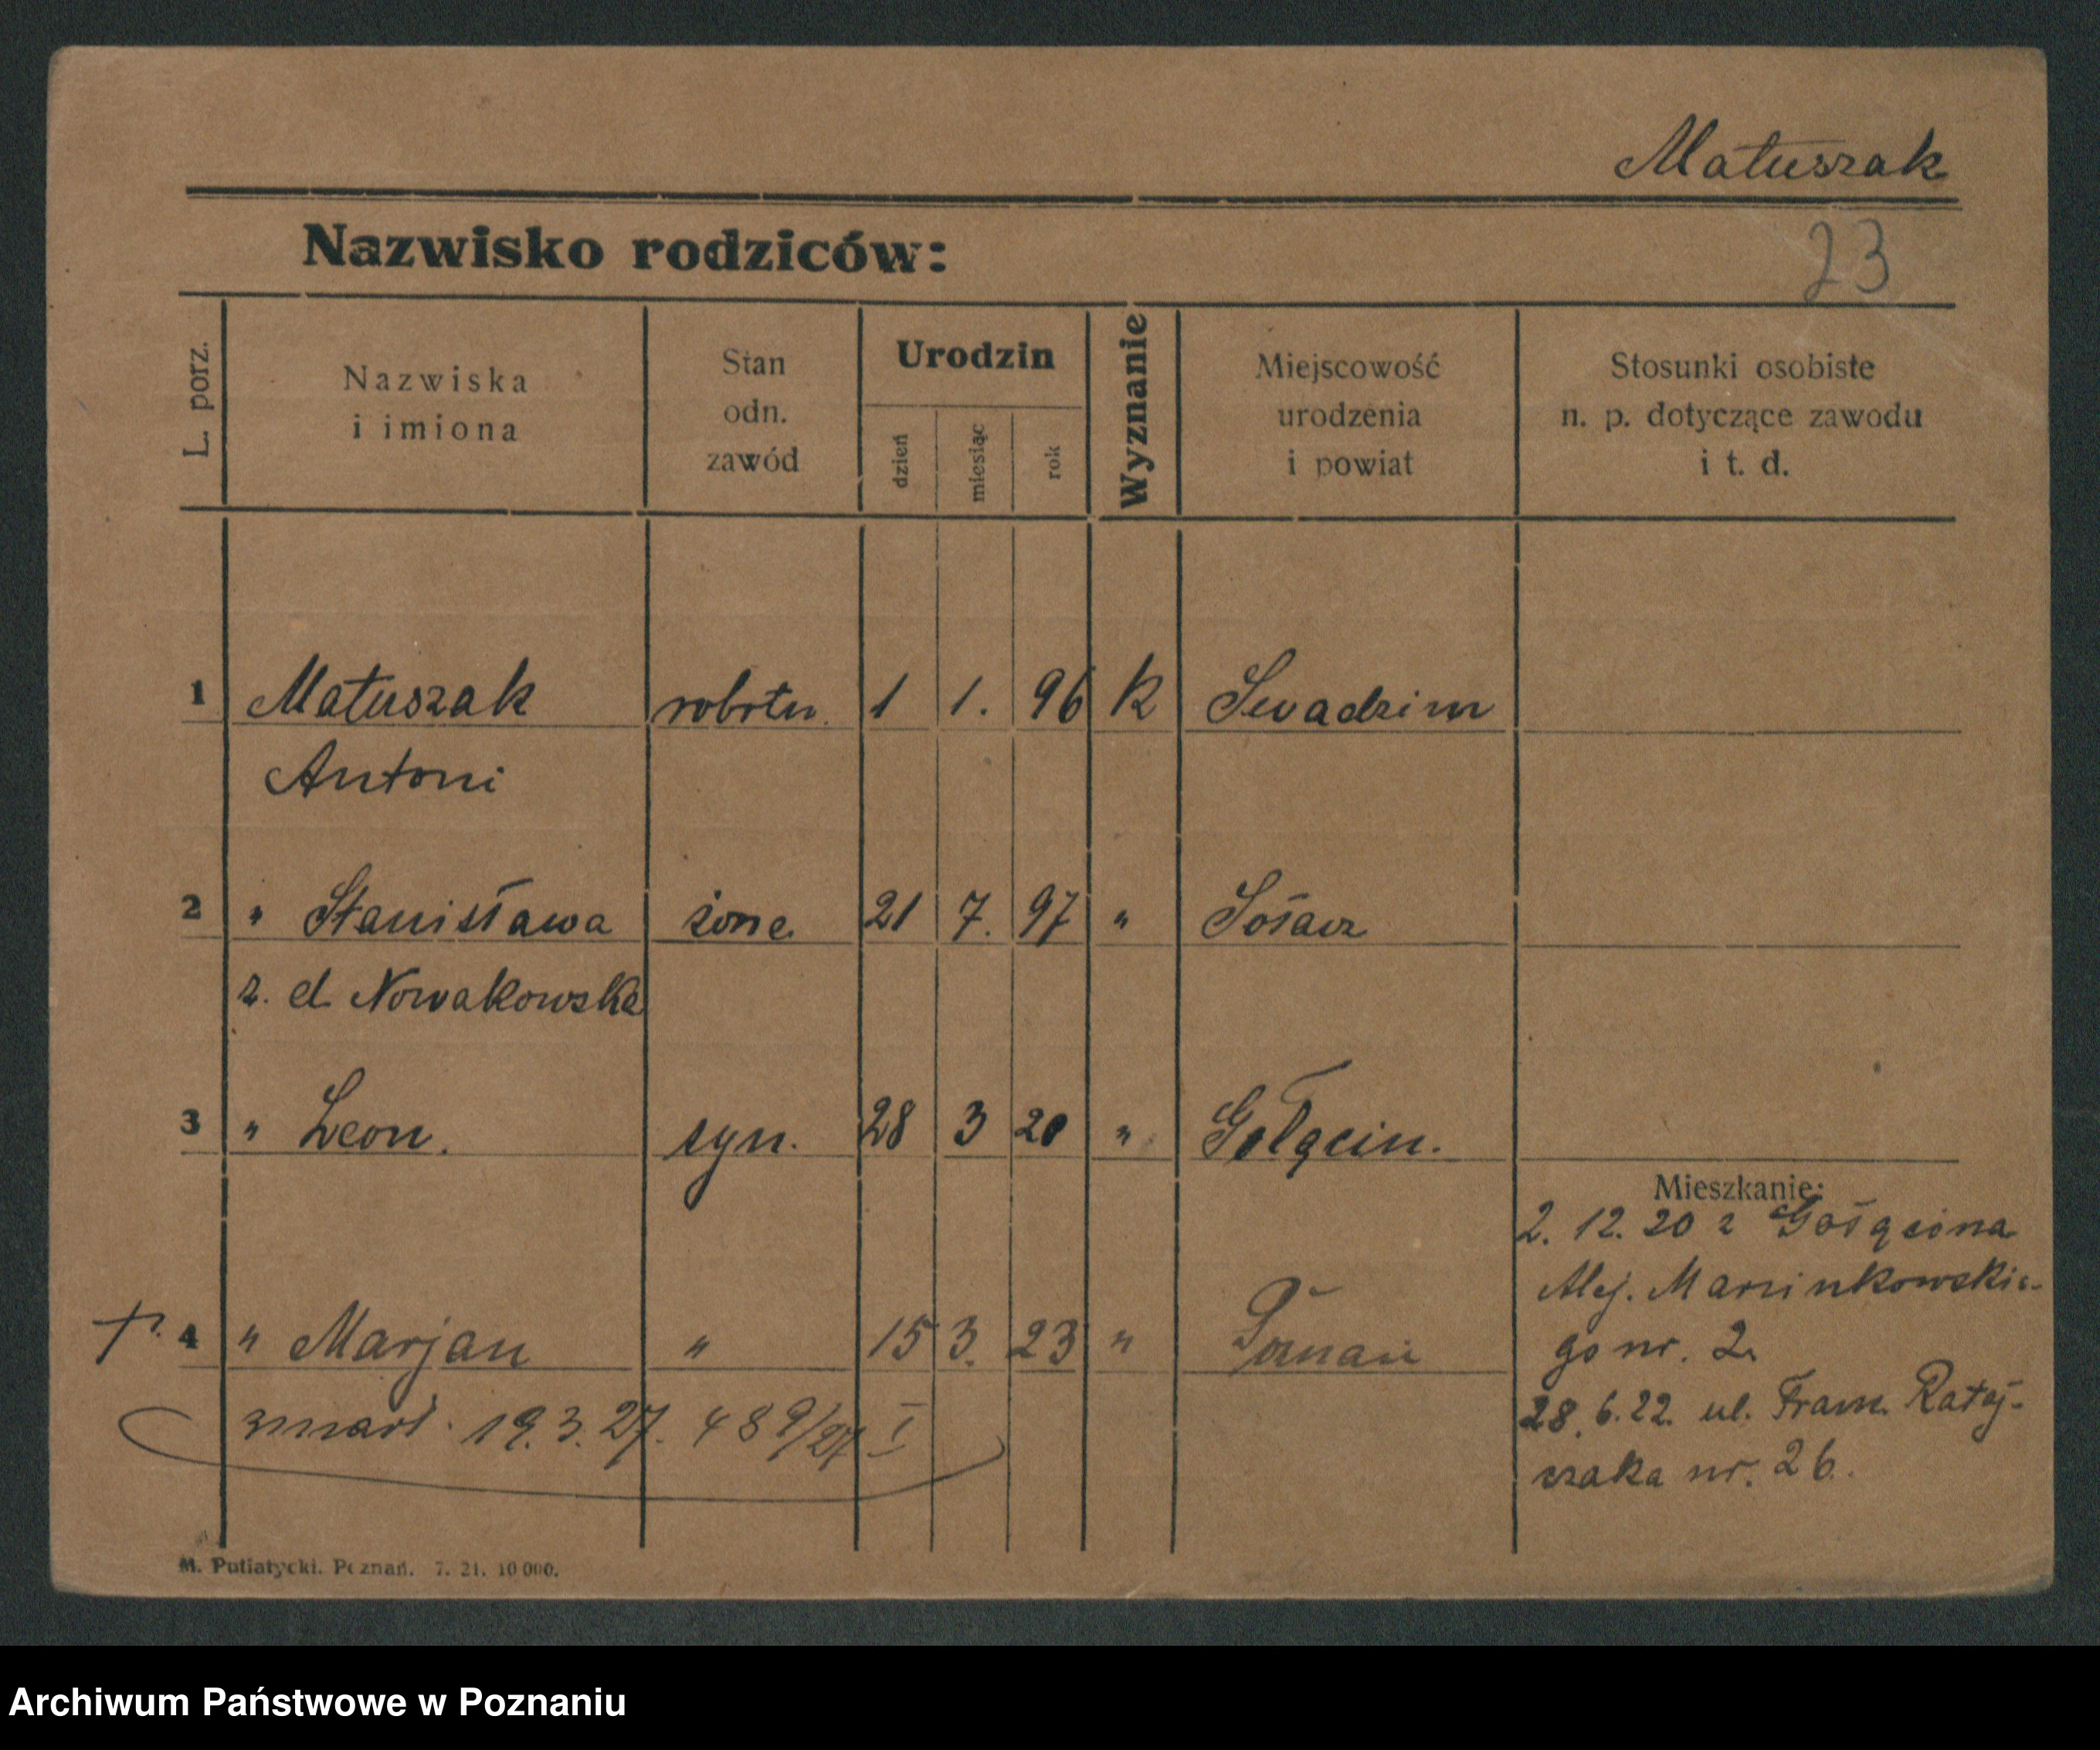 Matuszak
Nazwisko rodziców:
23
L. porz.
Nazwiska
i imiona
Stan
odn.
zawód
Urodzin
dzień
miesiąc
rok
Wyznanie
Miejscowość
urodzenia
i powiat
Stosunki osobiste
n. p. dotyczące zawodu
i t. d.
1 Matuszak robotn. 1 1. 96 k Swadzim
Antoni
2 " Stanisława żona 21 7. 97 " Sołacz
z. d. Nowakowska
3 " Leon. syn. 28 3 20 " Gołęcin.
Mieszkanie:
2. 12. 20 z Gołęcina
Alej. Marcinkowskie-
go nr. 2.
4 " Marjan " 15 3. 23 " Poznań
28. 6. 22. ul. Franc. Rataj-
czaka nr. 26.
zmarł. 19. 3. 27. 489/27 I
M. Putiatycki. Poznań. 7. 21. 10 000.
Archiwum Państwowe w Poznaniu